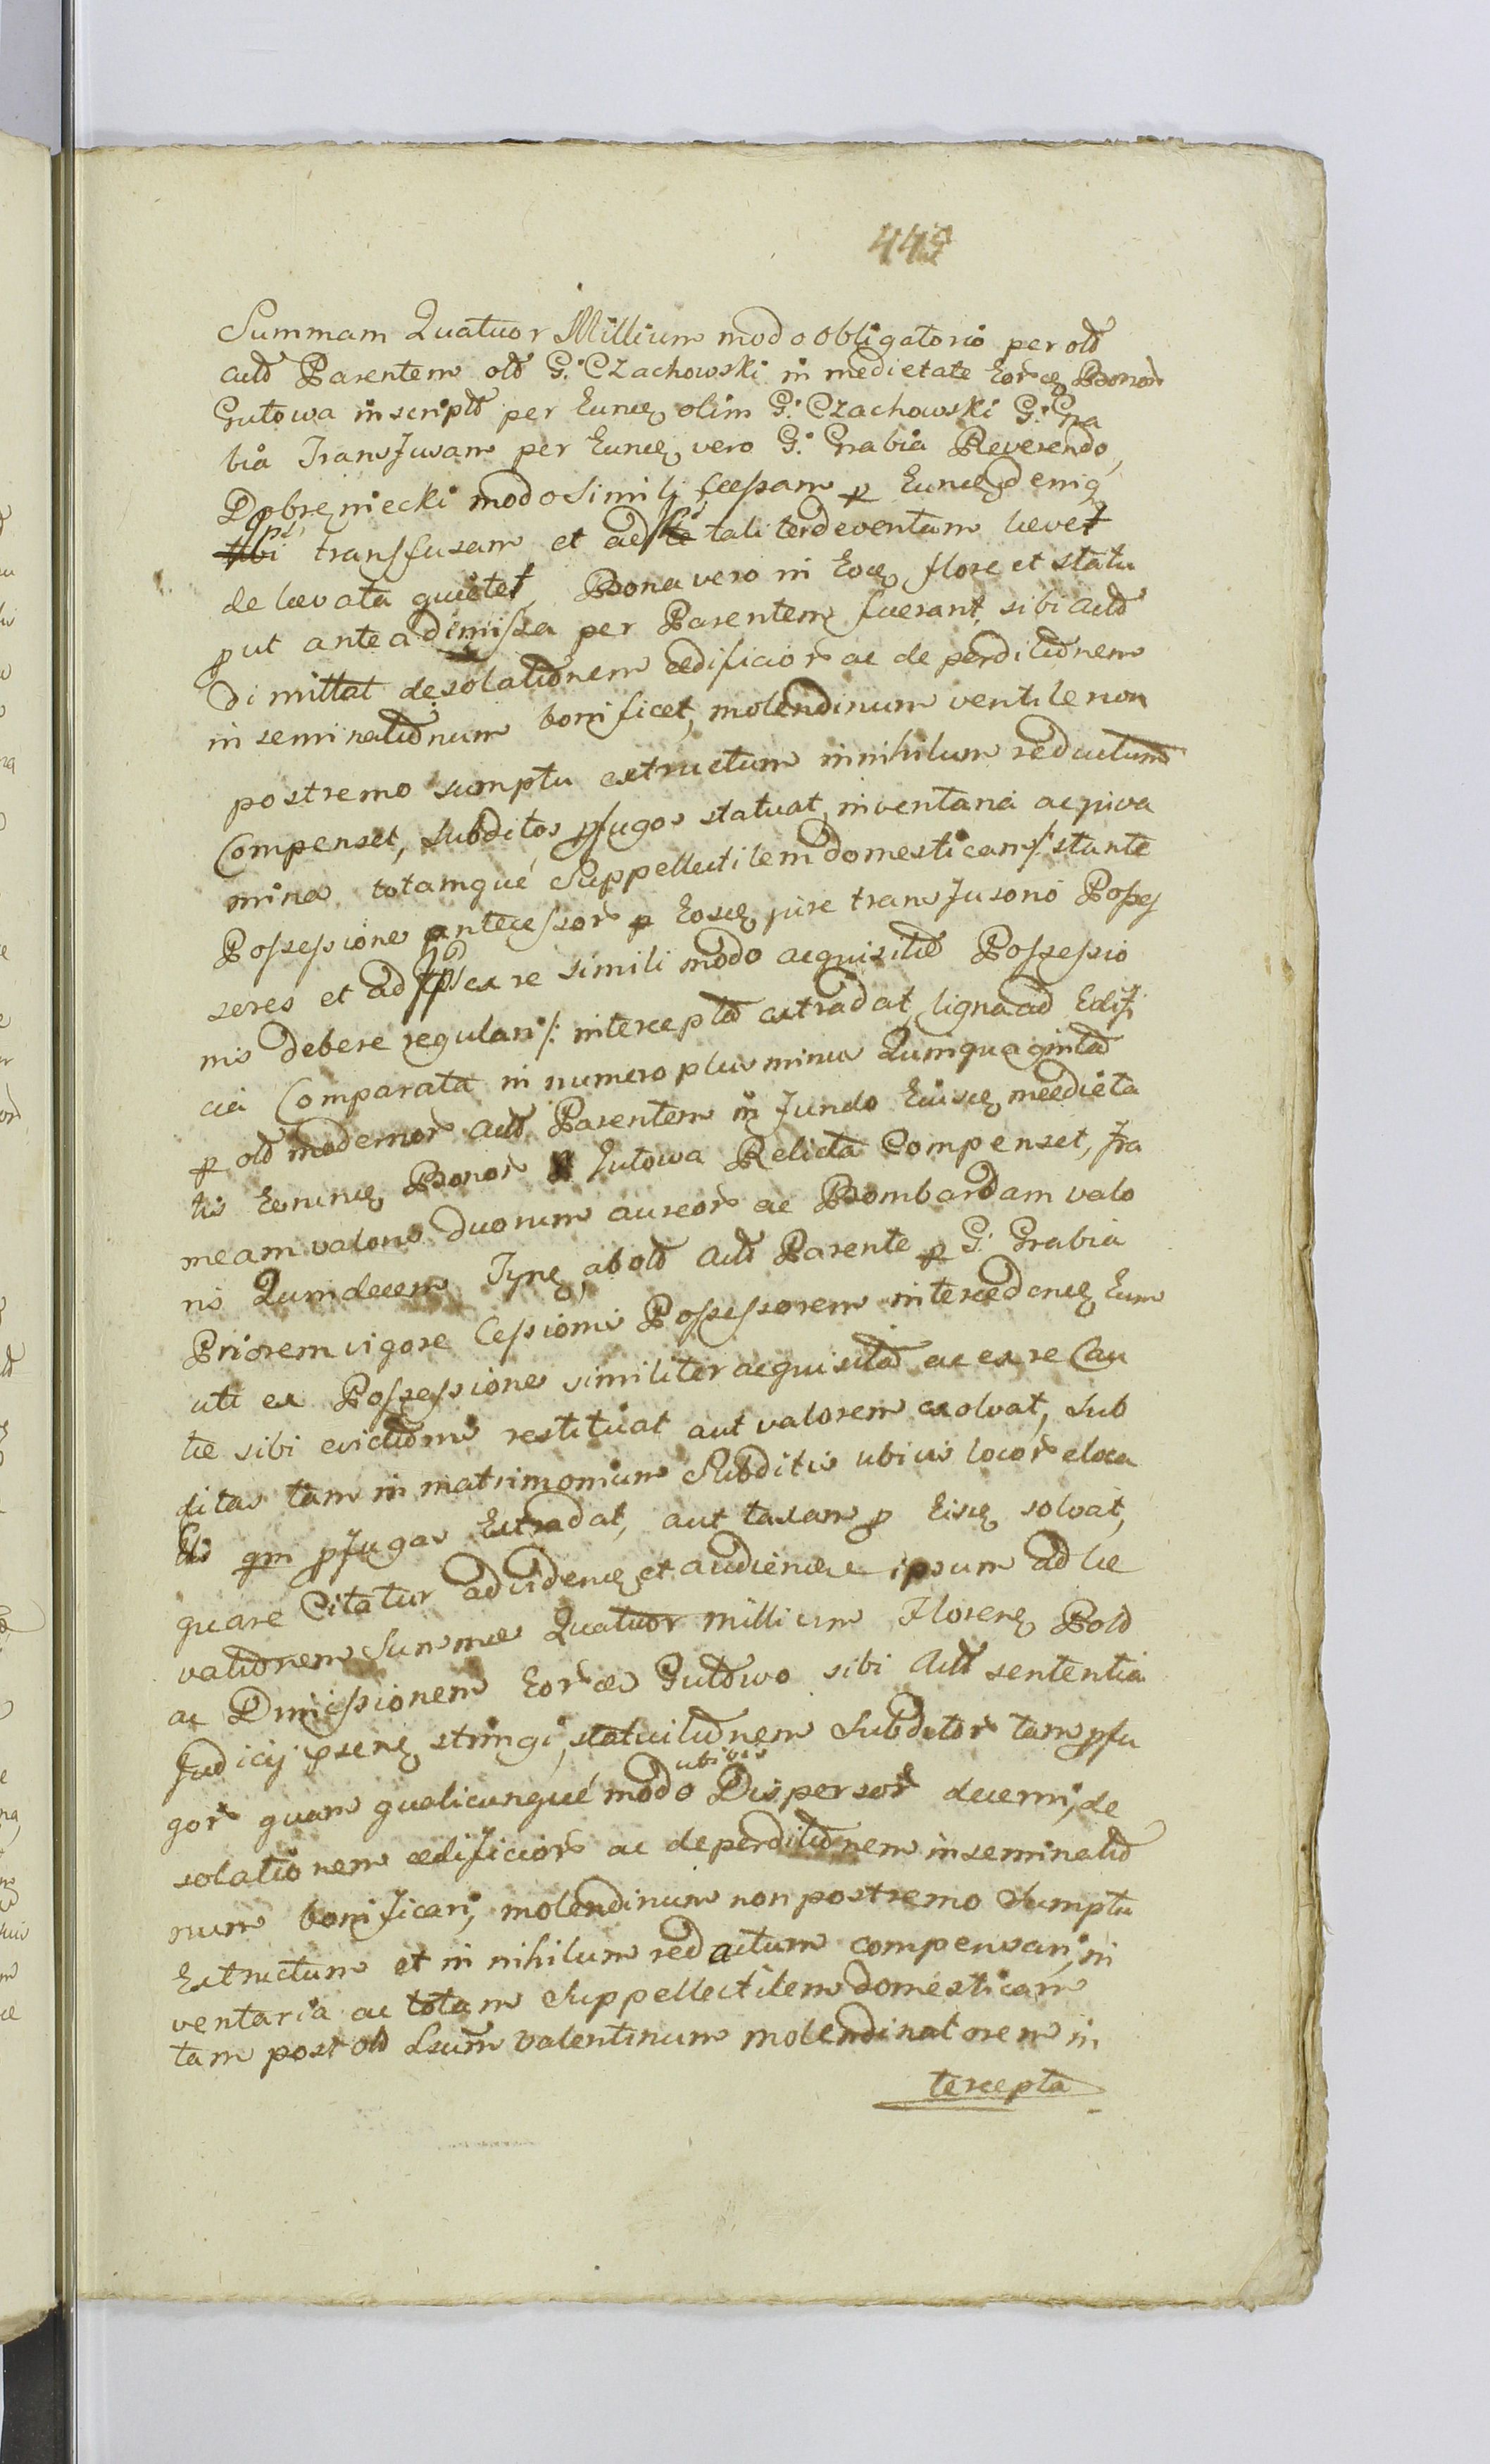 449
Summam Quatuor Millium modo obligatorio per old
actd Parentem old G: Czachowski in medietate Eorcę Bonor
Gutowa inscriptd per Euncę olim G: Czachowski G: Gra
bia Transfusam per Euncę vero G: Grabia Reverendo
Dobręniecki modo simili Cessam p Euncę deniq
transfusam et ad se taliter deventam levet
delevata quietet, Bona vero in Eocę flore et statu
put antea dimissa per Parentem fuerant, sibi actd
dimittat desolatdnem aedificior ac deperditdnem
inseminatdnum bonificet, molendinum ventile non
postremo sumptu extructum in nihilum redactum
Compenset, Subditos pfugos statuat, inventaria ac
mina totamqué Suppellectilem domesticam /: stante
Possessione antecessor p Eoscę jure transfusorio Posses
sores et ad ex re simili modo acquisitd Possessio
nis debere regulari :/ interceptd extradat, ligna ad Edifi
cia Comparata in numero plus minus Qumquagintd
p old modernor actd Parentem in fundo Eiuscę medieta
tis Earuncę Bonor Gutowa Relicta Compenset, fra
meam valoris duorum aureor ac Bombardam valo
ris Qumdecem Tynę, ab old actd Parente p G: Grabia
Priorem vigore Cessionis Possessorem intercedencę Eum
uti ex Possessione similiter acquisitd ac ex re Cau
tae sibi evictdnis restituat aut valorem exolvat, Sub
ditas tam in matrimonium Subditis ubivis locor eloca
tas qm pfugas Extradat, aut taxam p Eiscę solvat,
quare Citatur ad videncę et audiencę ipsum ad le
vatdnem Summae Quatuor millium Florenę Pold
ac Dimissionem Eorcę Gutdwo sibi Actd sententia
Judicij psenę stringi, statuitdnem Subditor tam pfu
gor quam qualicunqué modo ubivis Dispersor decerni, de
solationem aedificior ac deperditdnem inseminatd
num bonificari, molendinum non postremo Sumptu
Extructum et in nihilum redactum compensari, in
ventaria ac totam Suppellectilem domesticam
tam post old Lsum Valentinum molendinatorem in
tercepta